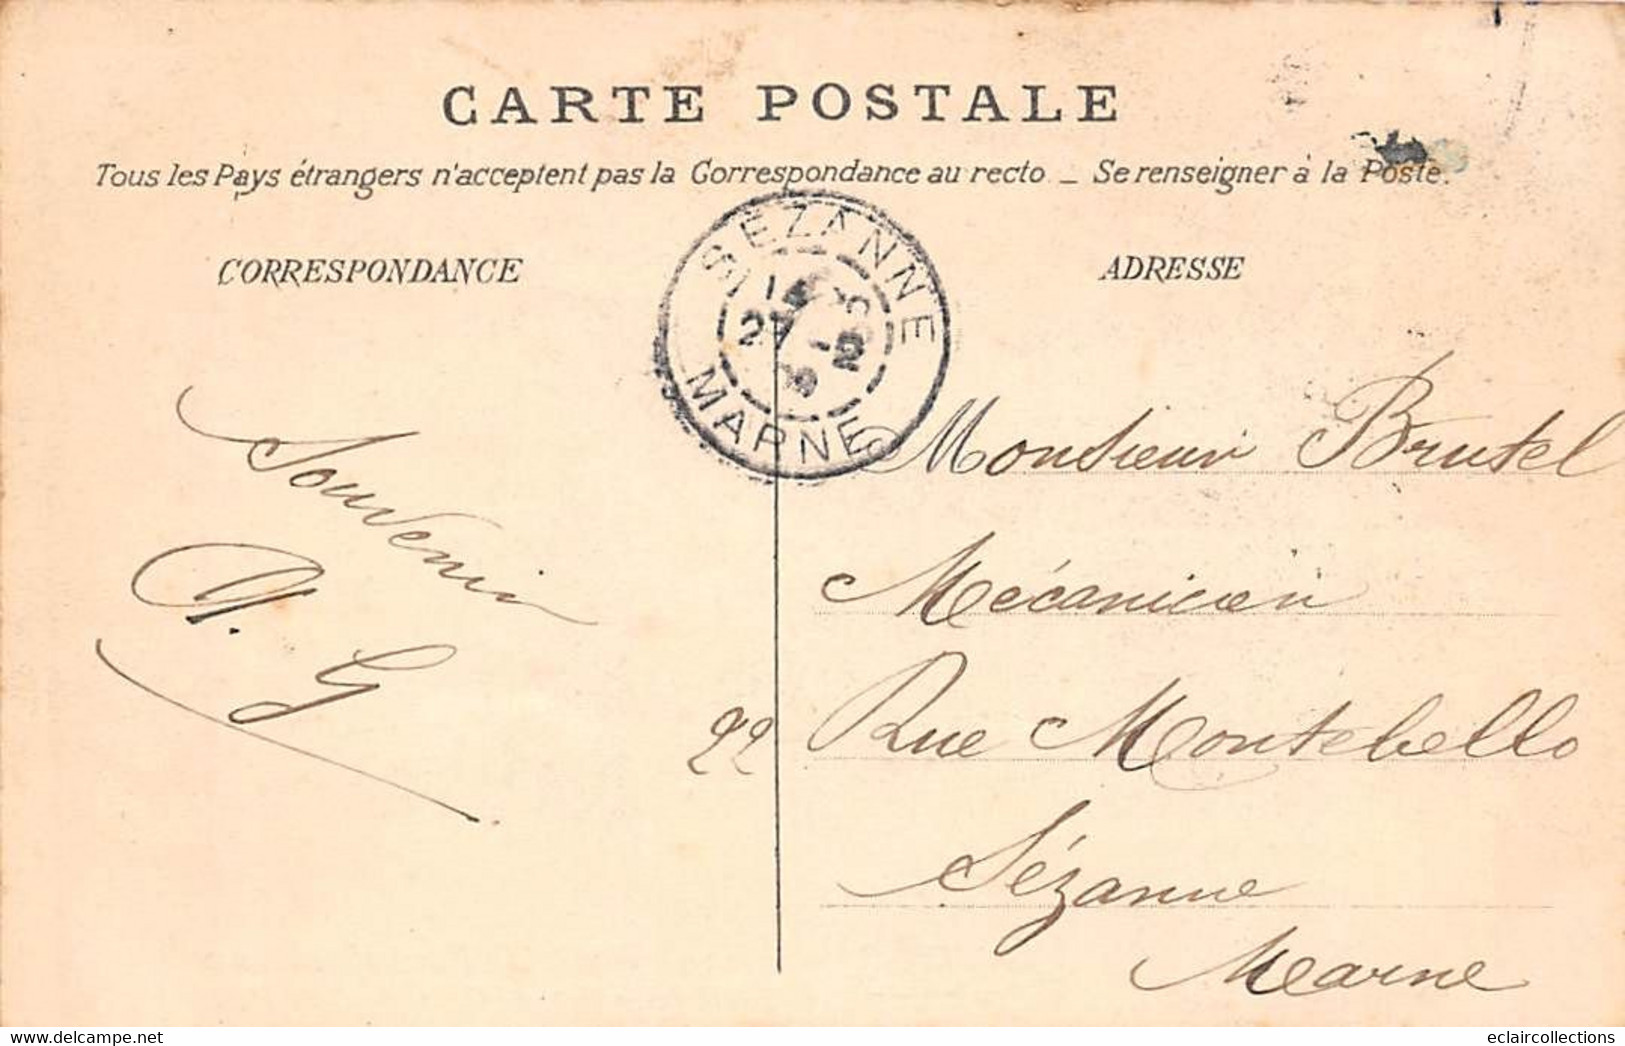 CARTE POSTALE
Tous les Pays étrangers n'acceptent pas la Correspondance au recto _ Se renseigner à la Poste.
CORRESPONDANCE
ADRESSE
SÉZANNE
27 -2
MARNE
Souvenir
G
Monsieur Brutel
Mécanicien
22 Rue Montebello
Sézanne
Marne
delcampe.net
eclaircollections